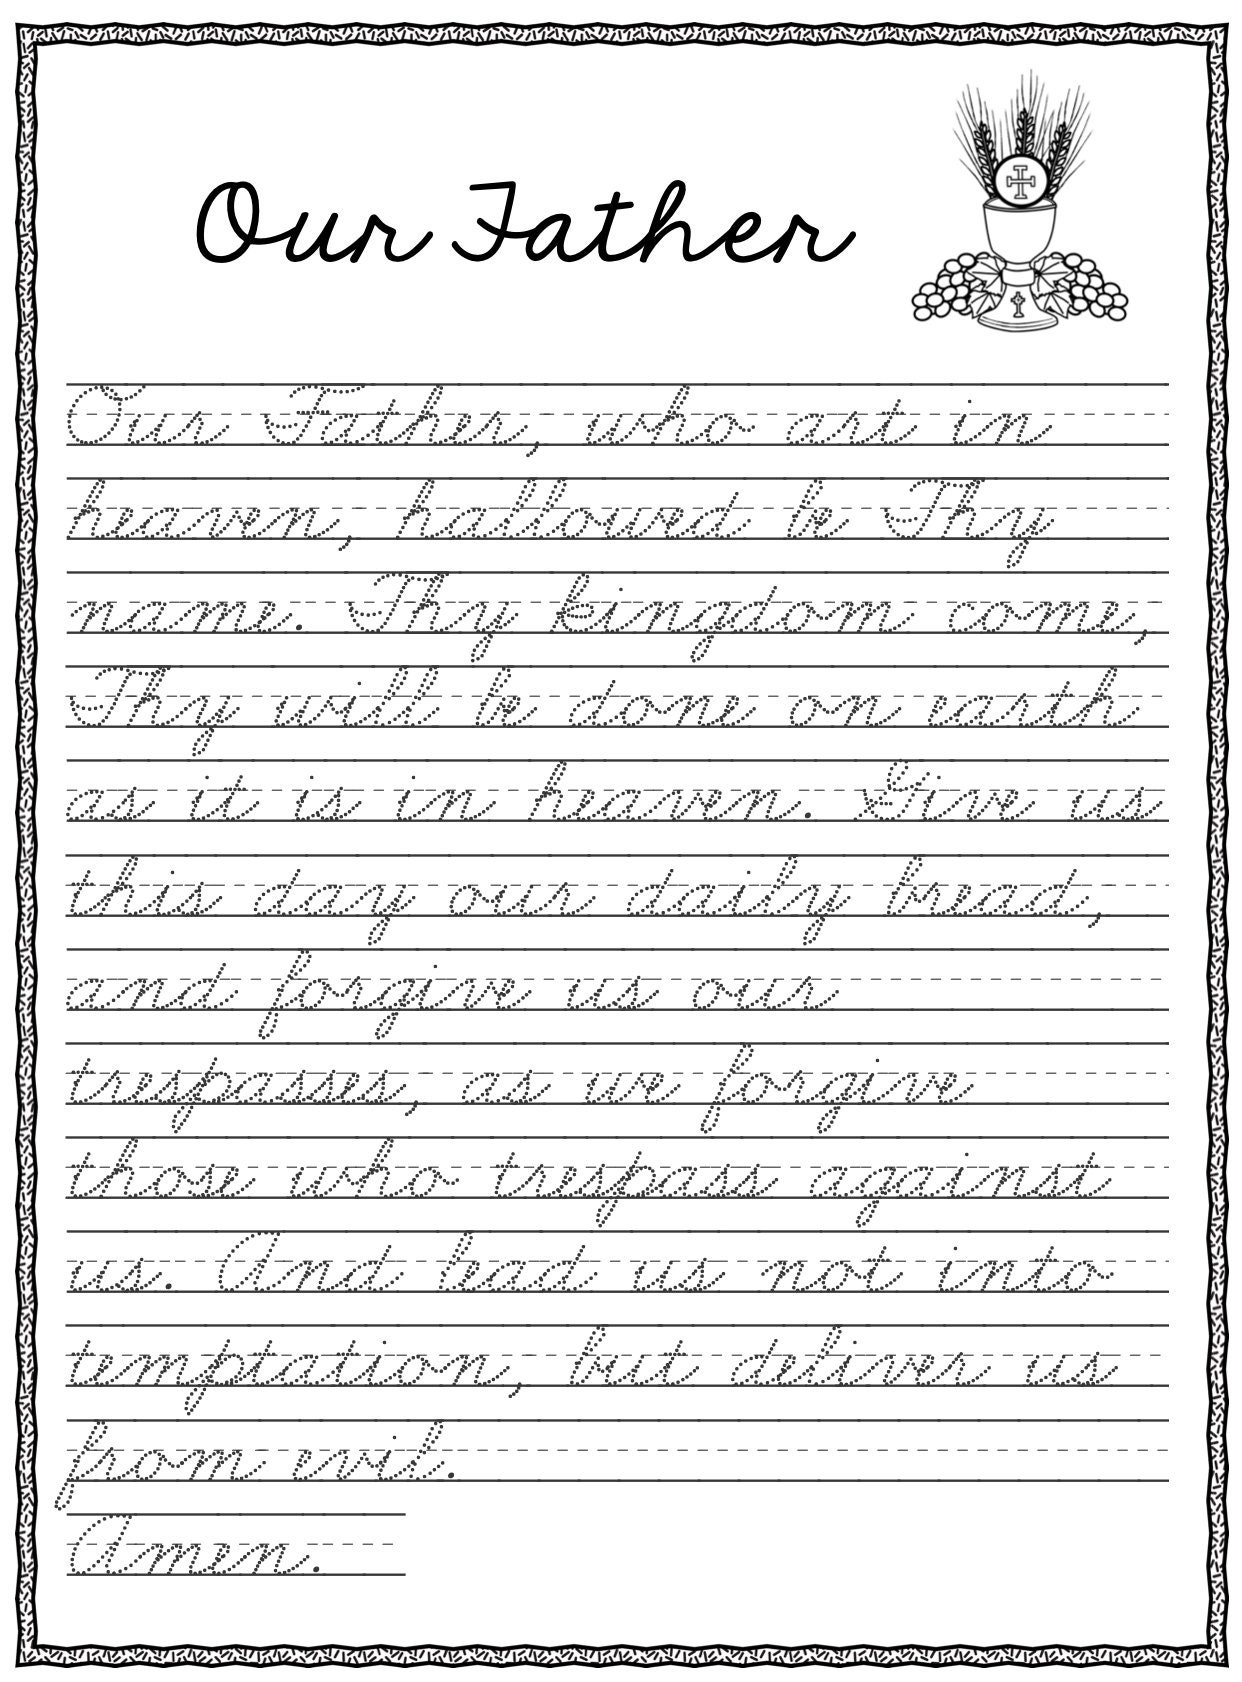 Our Father
Our Father, who art in
heaven, hallowed be Thy
name. Thy kingdom come,
Thy will be done on earth
as it is in heaven. Give us
this day our daily bread,
and forgive us our
trespasses, as we forgive
those who trespass against
us. And lead us not into
temptation, but deliver us
from evil.
Amen.